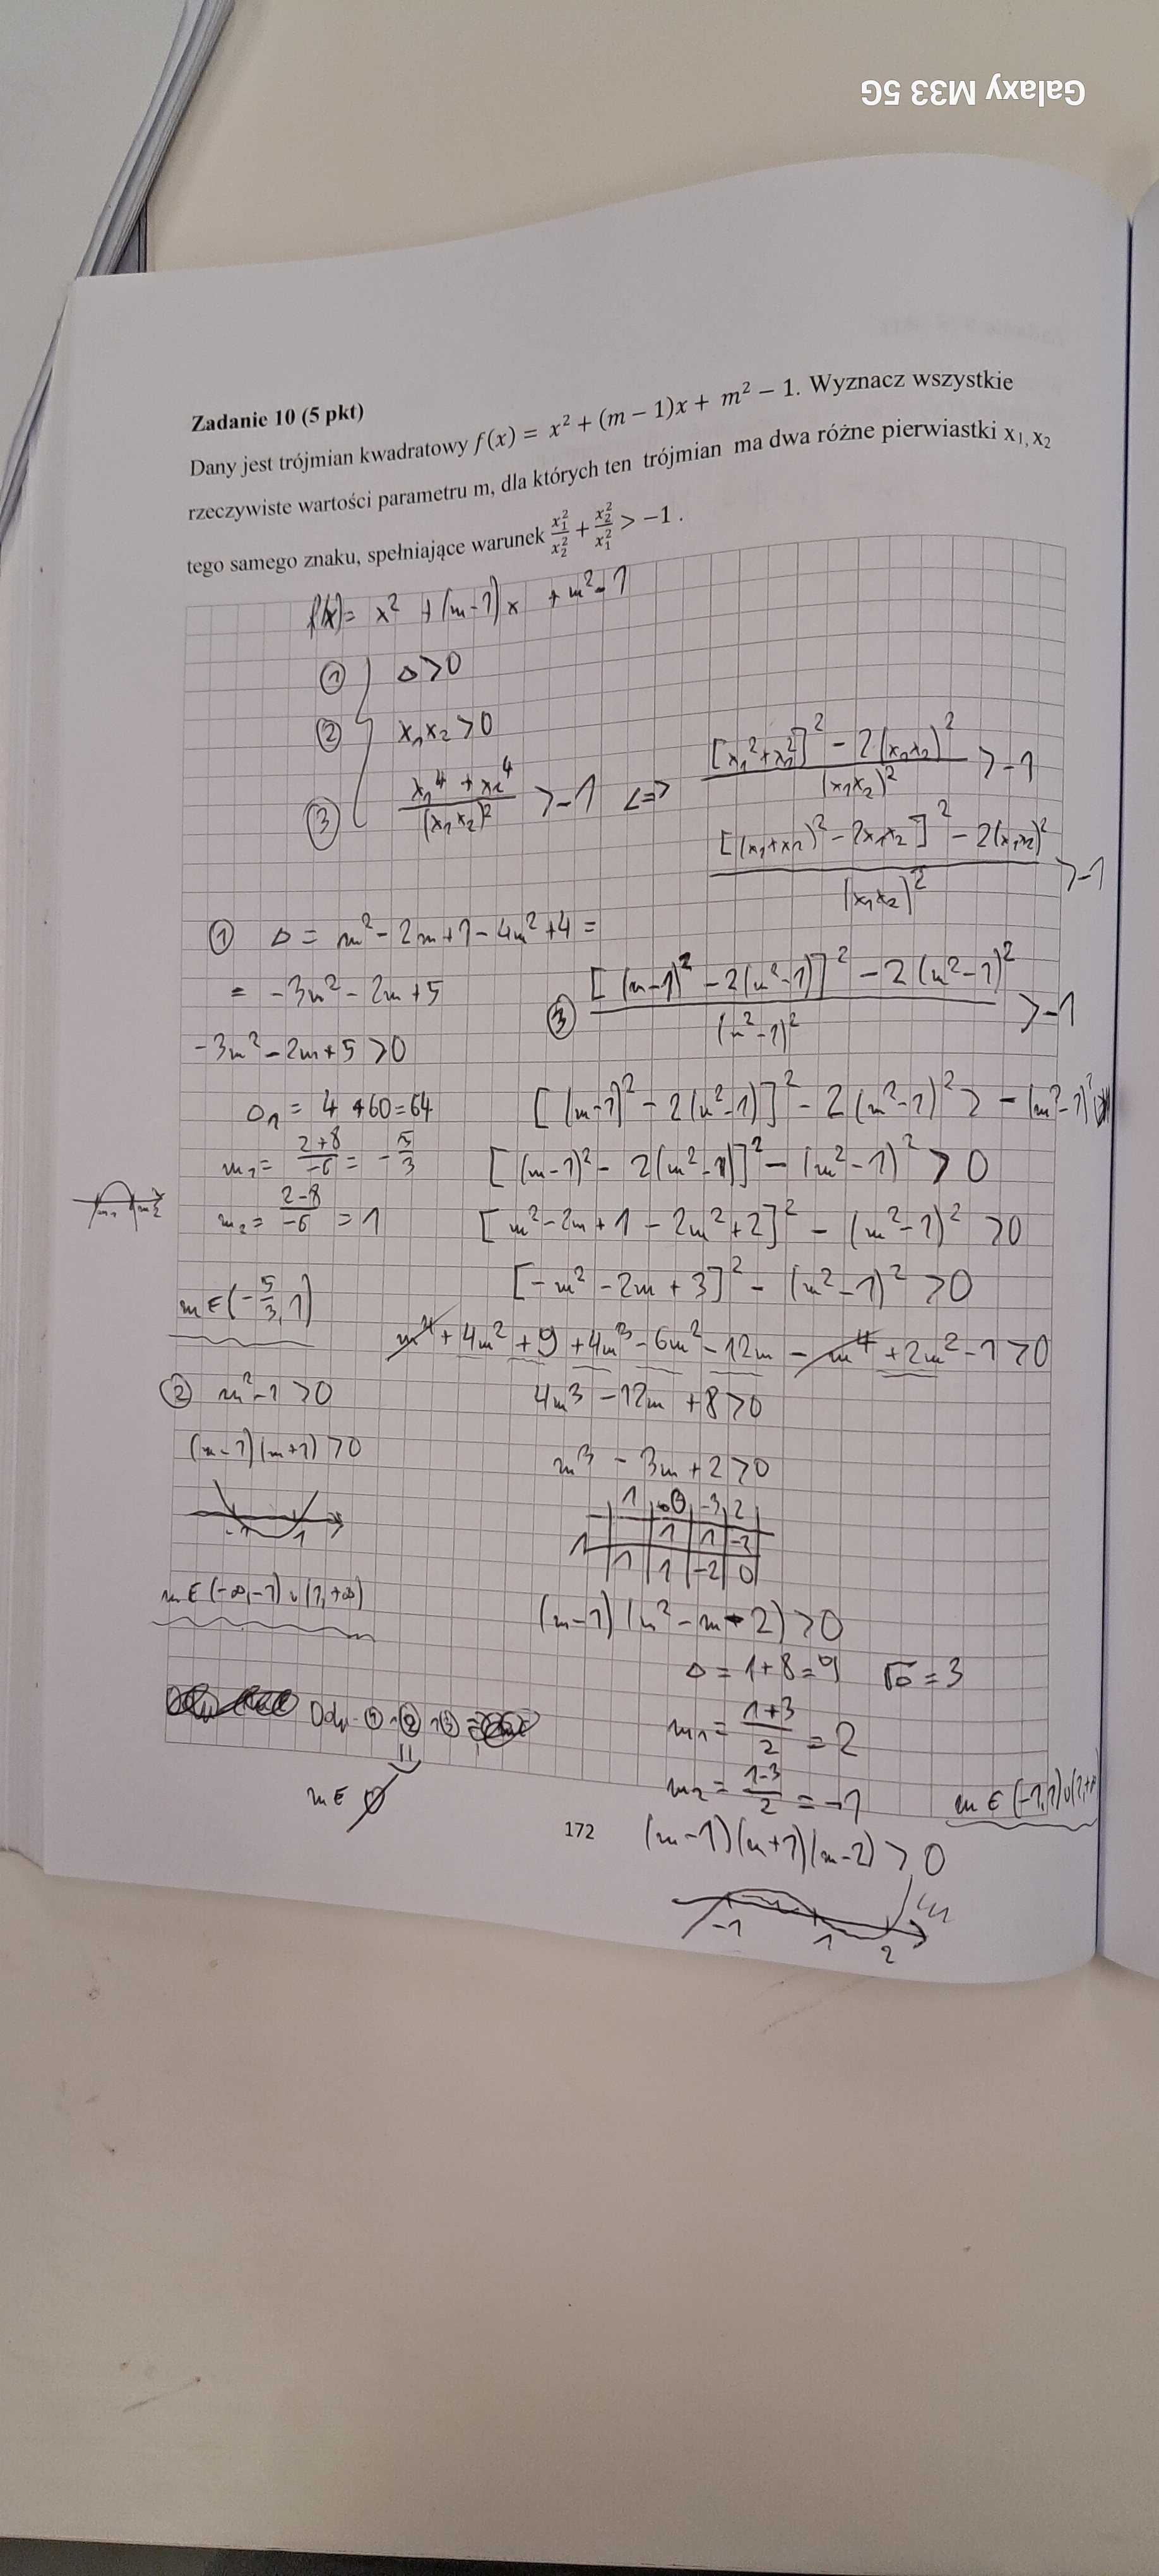 Galaxy M33 5G
Zadanie 10 (5 pkt)
Dany jest trójmian kwadratowy f(x) = x² + (m − 1)x + m² − 1. Wyznacz wszystkie
rzeczywiste wartości parametru m, dla których ten trójmian ma dwa różne pierwiastki x₁, x₂
tego samego znaku, spełniające warunek x₁²/x₂² + x₂²/x₁² > −1 .
f(x) = x² + (m-1)x + m²-1
① Δ>0
② x₁x₂>0
③ (x₁⁴ + x₂⁴)/(x₁x₂)² >-1 <=> ([x₁²+x₂²]² - 2(x₁x₂)²)/(x₁x₂)² >-1
([(x₁+x₂)² - 2x₁x₂]² - 2(x₁x₂)²)/(x₁x₂)² >-1
① Δ = m² - 2m + 1 - 4m² + 4 =
= -3m² - 2m + 5
-3m² - 2m + 5 >0
Δ₁ = 4 + 60 = 64
m₁ = (2+8)/-6 = -5/3
m₂ = (2-8)/-6 = 1
m₁ m₂
m ∈ (-5/3, 1)
② m²-1 >0
(m-1)(m+1) >0
-1 1
m ∈ (-∞,-1) ∪ (1,+∞)
③ ([(m-1)² - 2(m²-1)]² - 2(m²-1)²)/(m²-1)² >-1
[(m-1)² - 2(m²-1)]² - 2(m²-1)² > -(m²-1)²
[(m-1)² - 2(m²-1)]² - (m²-1)² > 0
[m²-2m+1 - 2m²+2]² - (m²-1)² >0
[-m² - 2m + 3]² - (m²-1)² >0
m⁴ + 4m² + 9 + 4m³ - 6m² - 12m - m⁴ + 2m² - 1 >0
4m³ - 12m + 8 >0
m³ - 3m + 2 >0
1 0 -3 2
1 1 -2
1 1 1 -2 0
(m-1)(m² - m - 2) >0
Δ = 1+8 = 9 √Δ = 3
m₁ = (1+3)/2 = 2
m₂ = (1-3)/2 = -1
m ∈ (-1,1) ∪ (2,+∞
(m-1)(m+1)(m-2) > 0
-1 1 2
Odp. ① ∧ ② ∧ ③
m ∈ ∅
172